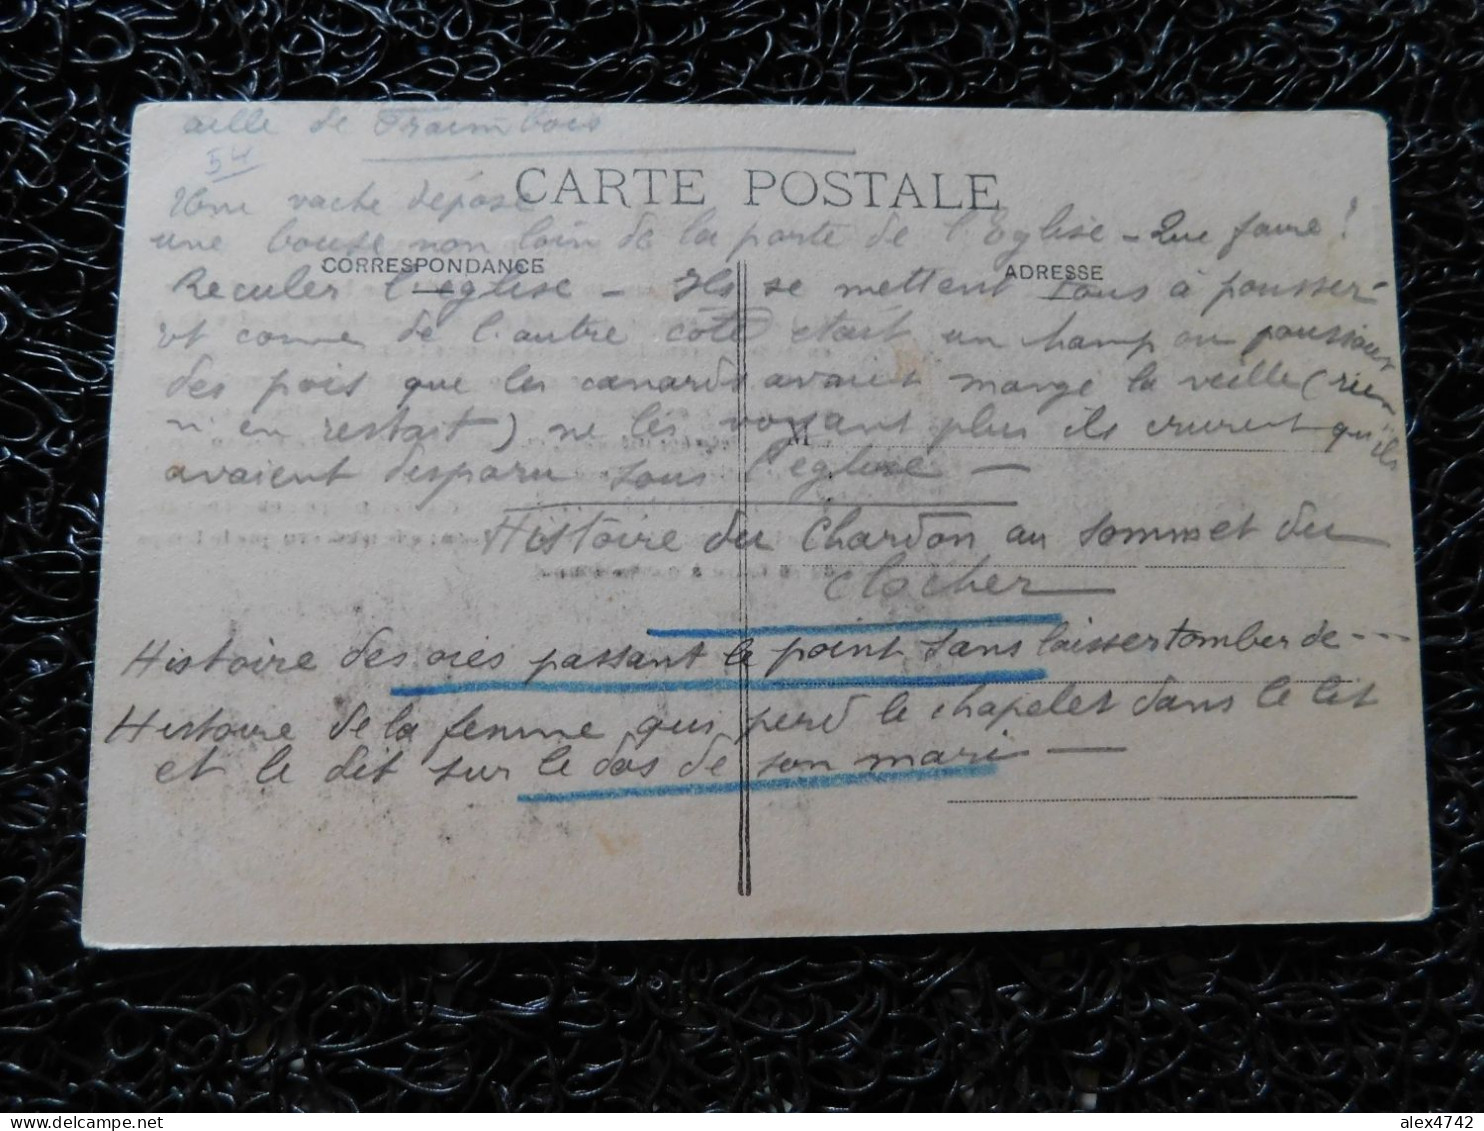 de Fraimbois
54
CARTE POSTALE
Une vache dépose
une bouse non loin de la porte de l'Eglise - Que faire !
CORRESPONDANCE
ADRESSE
Reculer l'église - Ils se mettent tous à pousser
et come de l'autre coté était un champ ou poussaient
des pois que les canards avaient mangé la veille (rien
n'en restait) ne les voyant plus ils crurent qu'ils
M
avaient disparu sous l'eglise -
Histoire du Chardon au sommet du
clocher
Histoire des oies passant le point sans laisser tomber de ---
Histoire de la femme qui perd le chapelet dans le lit
et le dit sur le dos de son mari
alex4742